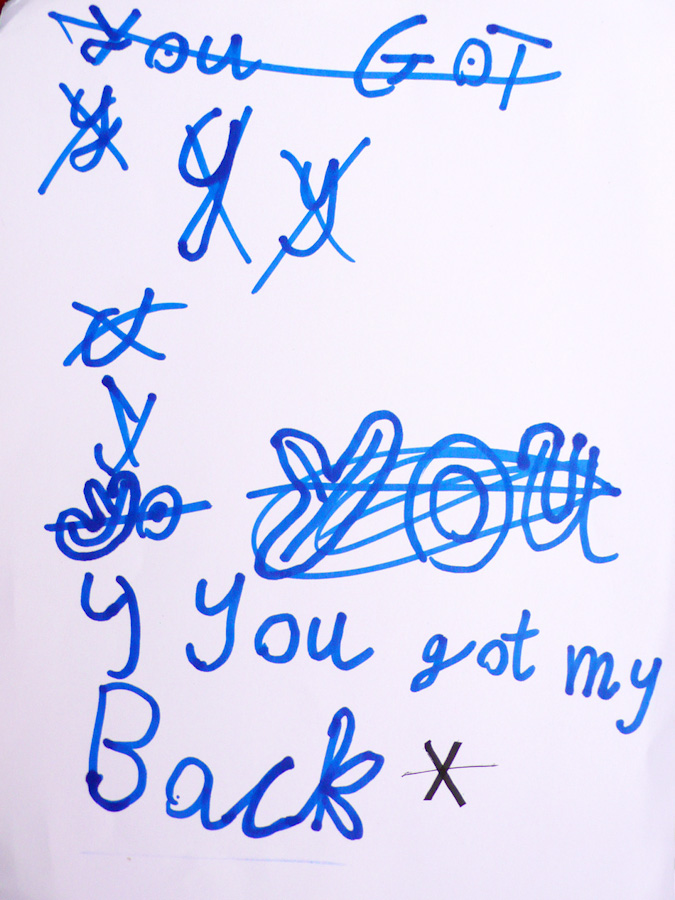 You GOT
y y y
y
y
yo You
y You got my
Back x